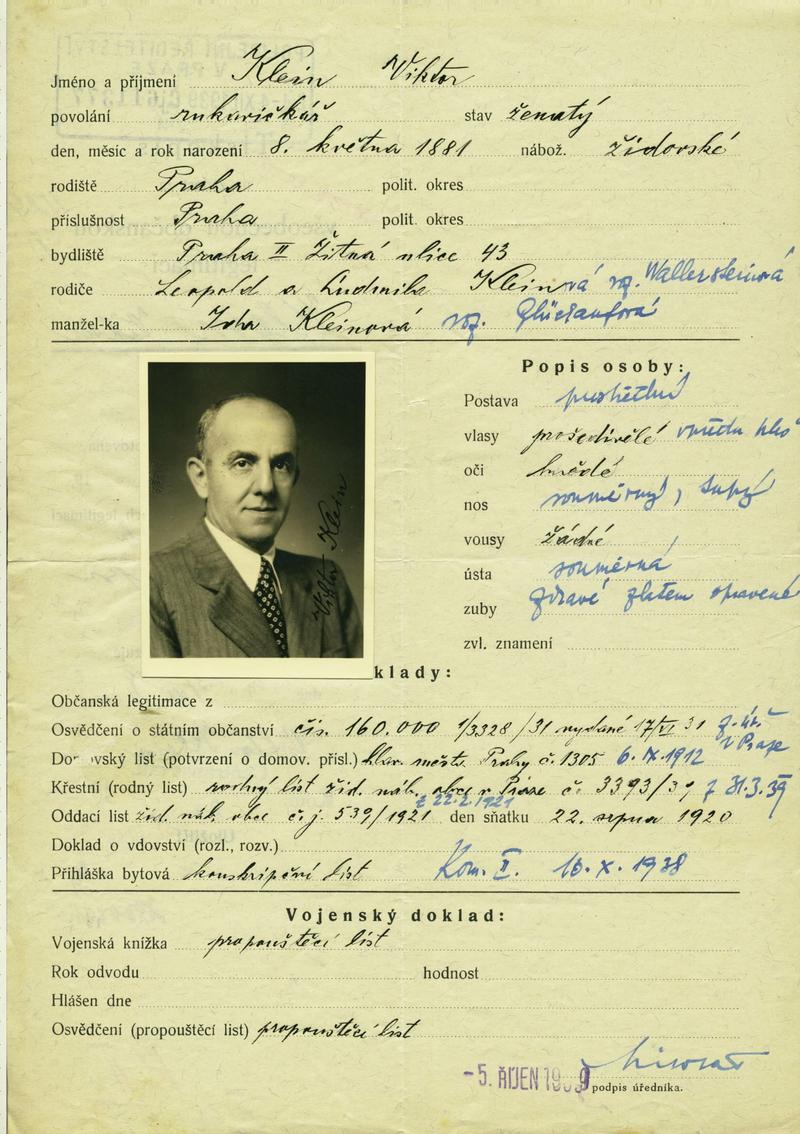 Jméno a příjmení Klein Viktor
povolání rukavičkář stav ženatý
den, měsíc a rok narození 8. května 1881 nábož. židovské
rodiště Praha polit. okres
příslušnost Praha polit. okres
bydliště Praha II Žitná ulice 43
rodiče Leopold a Ludmila Kleinová roz. Wallersteinová
manžel-ka Ida Kleinová roz.
Popis osoby:
Postava prostřední
vlasy prošedivělé
oči hnědé
nos souměrný,
vousy žádné
ústa souměrná
zuby zdravé zlatem opravené
zvl. znamení
Viktor Klein
klady:
Občanská legitimace z
Osvědčení o státním občanství čís. 160.000 1/3328/31 vydané 17/VI 31
v Praze
Do vský list (potvrzení o domov. přísl.) hlav. město Prahy č. 1305 6. IX. 1912
Křestní (rodný list) rodný list žid. náb. obce v Praze č. 3393/39 z 31.3.39
z 22.2.1921
Oddací list žid. náb. obce č.j. 539/1921 den sňatku 22. srpna 1920
Doklad o vdovství (rozl., rozv.)
Přihláška bytová konskripční list Kom. II. 16. X. 1938
Vojenský doklad:
Vojenská knížka propouštěcí list
Rok odvodu hodnost
Hlášen dne
Osvědčení (propouštěcí list) propouštěcí list
-5. ŘÍJEN 1939
podpis úředníka.